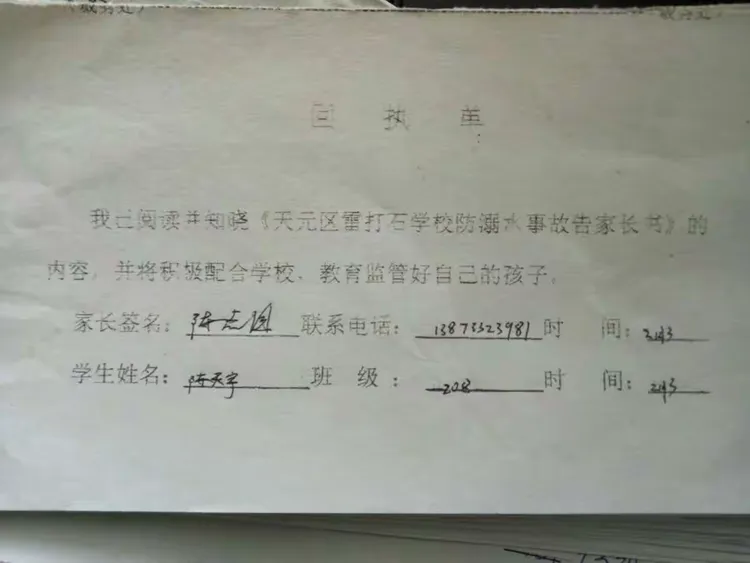 回 执 单
我已阅读并知晓《天元区雷打石学校防溺水事故告家长书》的
内容，并将积极配合学校、教育监管好自己的孩子。
家长签名： 联系电话：13873323981 时 间：
学生姓名：陈天宇 班 级：208 时 间：